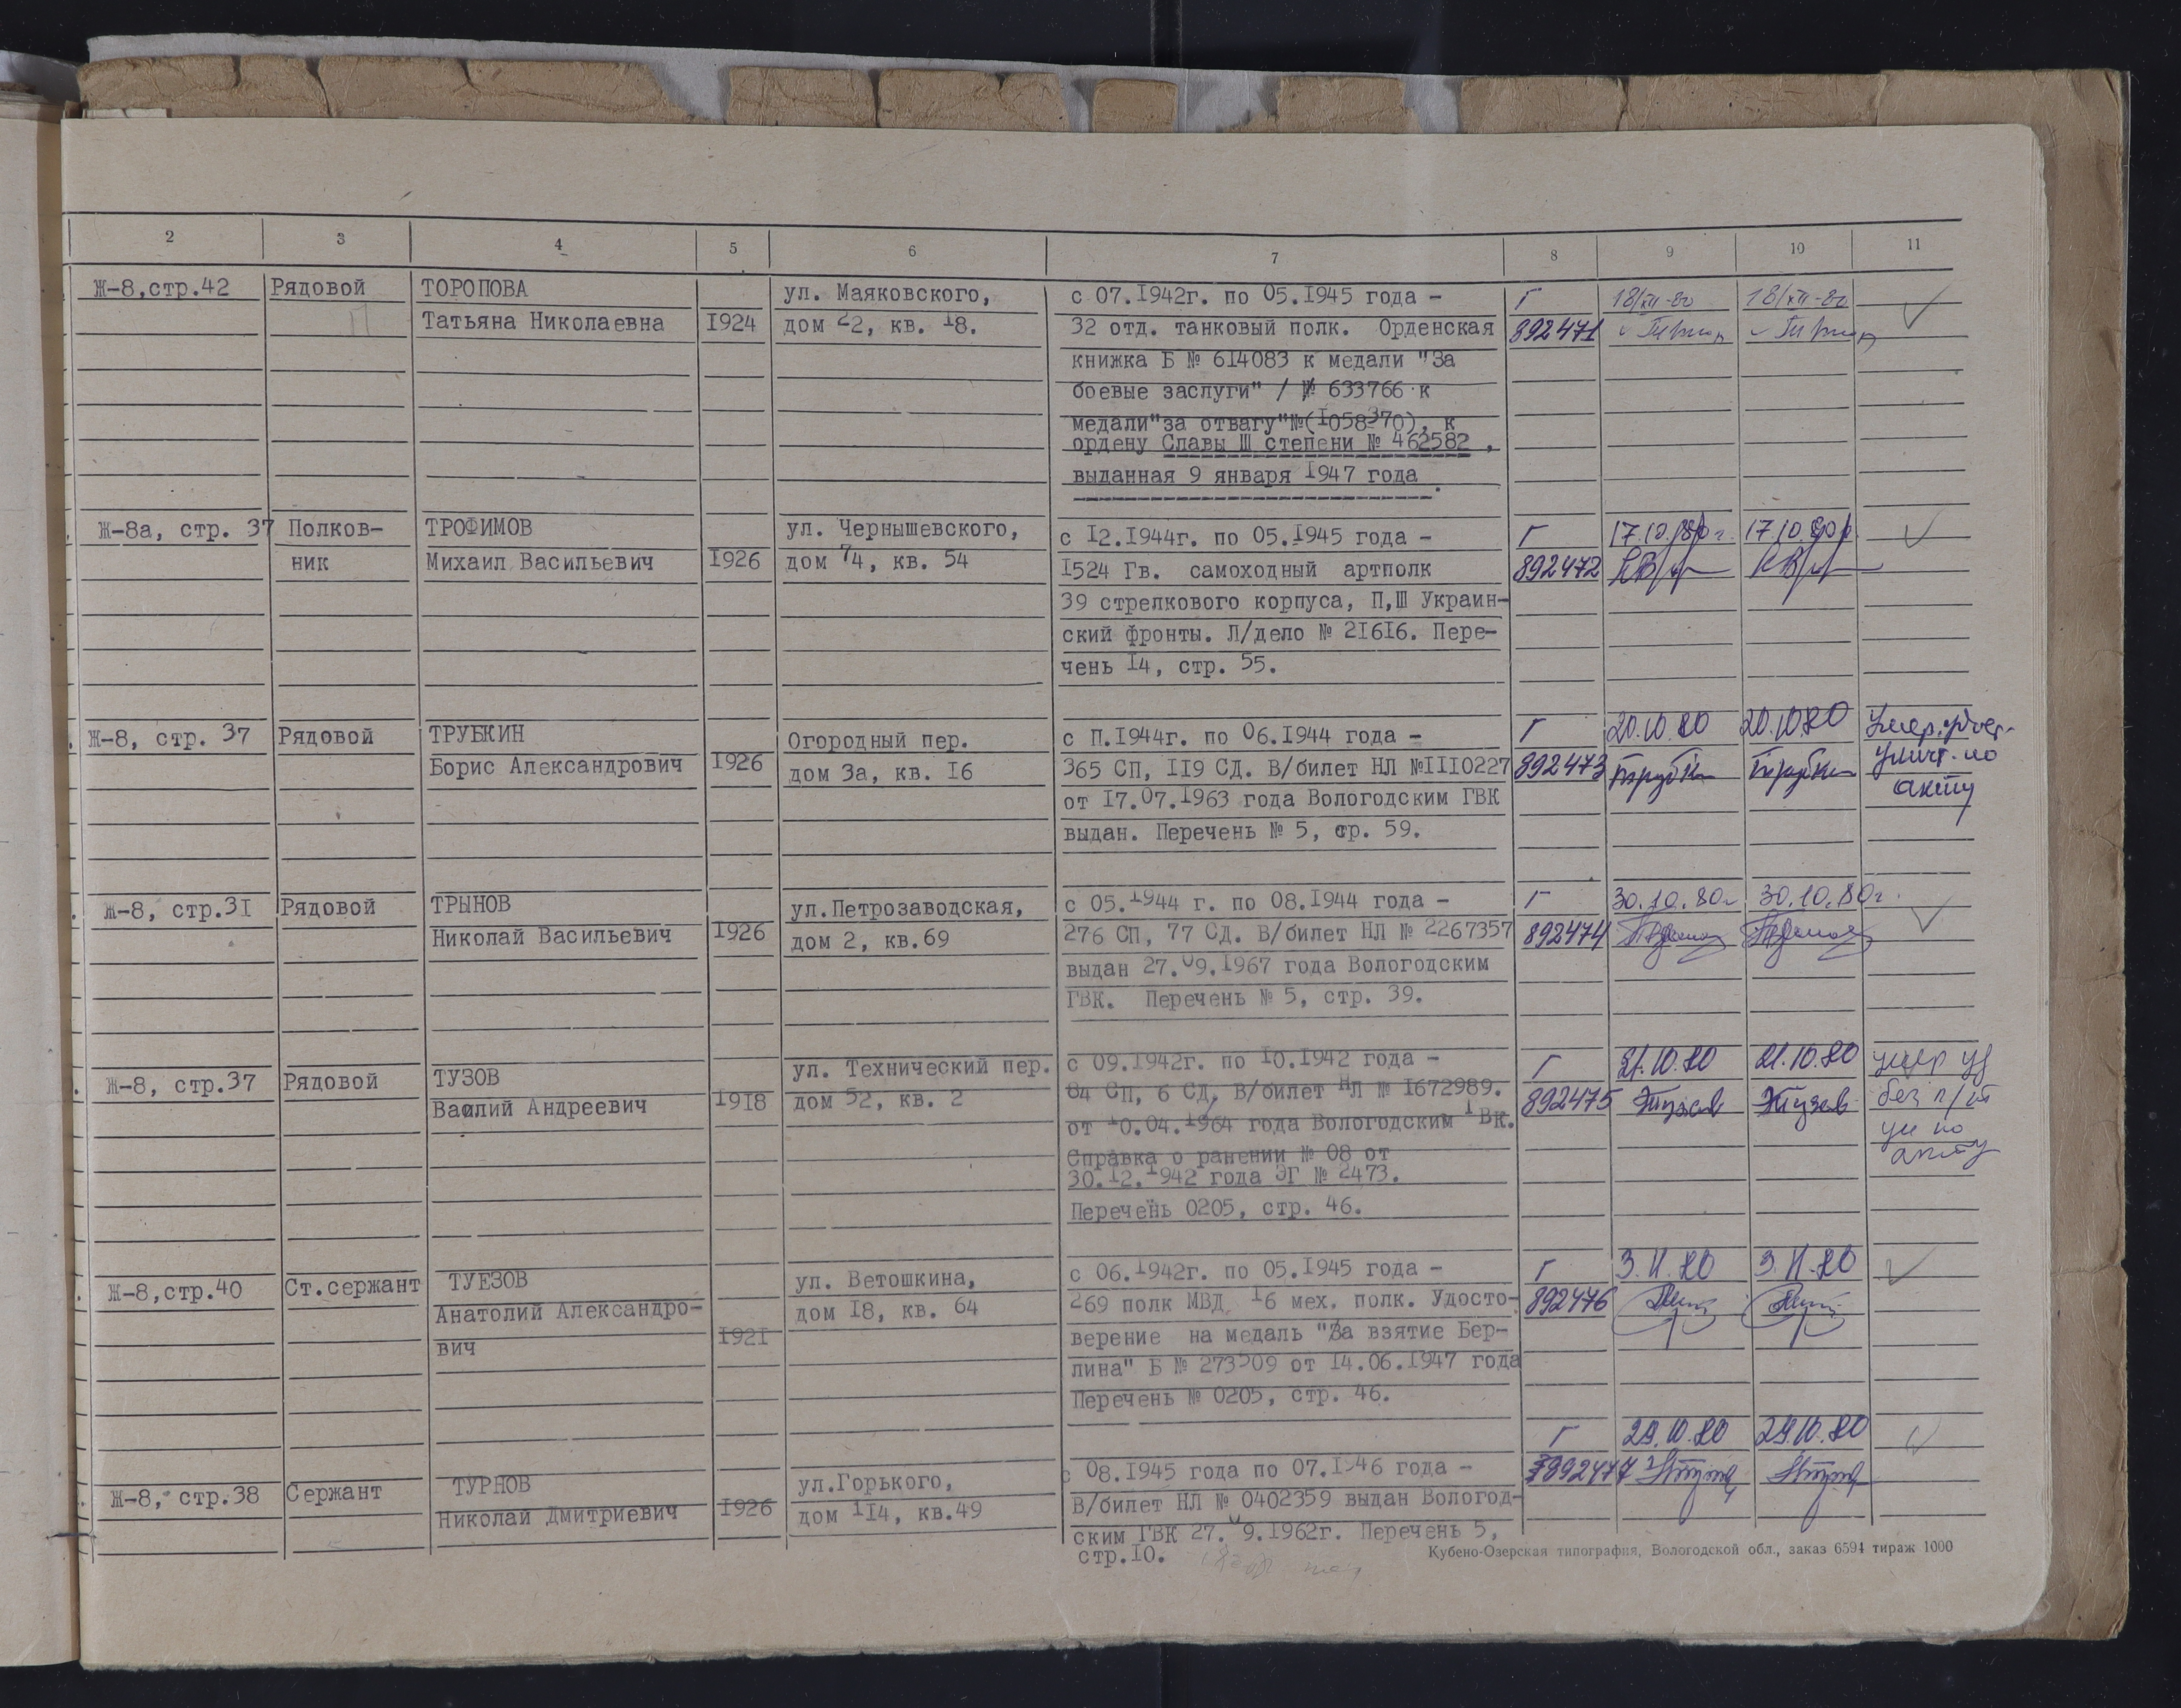 2 3 4 5 6 7 8 9 10 11
Ж-8,стр.42 Рядовой ТОРОПОВА ул. Маяковского, с 07.1942г. по 05.1945 года – Г 18/XII-80 18/XII-80
Татьяна Николаевна 1924 дом 22, кв. 18. 32 отд. танковый полк. Орденская 892471
книжка Б № 614083 к медали "За
боевые заслуги" / № 633766 к
медали"за отвагу"№(1058370), к
ордену Славы Ш степени № 462582 ,
выданная 9 января 1947 года .
Ж-8а, стр. 37 Полков- ТРОФИМОВ ул. Чернышевского, с 12.1944г. по 05.1945 года – Г 17.10.80г. 17.10.80г.
ник Михаил Васильевич 1926 дом 74, кв. 54 1524 Гв. самоходный артполк 892472
39 стрелкового корпуса, П,Ш Украин-
ский фронты. Л/дело № 21616. Пере-
чень 14, стр. 55.
Ж-8, стр. 37 Рядовой ТРУБКИН Огородный пер. с П.1944г. по 06.1944 года – Г 20.10.80 20.10.80 Умер. удост.
Борис Александрович 1926 дом 3а, кв. 16 365 СП, 119 СД. В/билет НЛ №1110227 892473 Трубкин Трубкин уничт. по
от 17.07.1963 года Вологодским ГВК акту
выдан. Перечень № 5, стр. 59.
Ж-8, стр.31 Рядовой ТРЫНОВ ул.Петрозаводская, с 05.1944 г. по 08.1944 года – Г 30.10.80г 30.10.80г.
Николай Васильевич 1926 дом 2, кв.69 276 СП, 77 СД. В/билет НЛ № 2267357 892474
выдан 27.09.1967 года Вологодским
ГВК. Перечень № 5, стр. 39.
Ж-8, стр.37 Рядовой ТУЗОВ ул. Технический пер. с 09.1942г. по 10.1942 года – Г 21.10.80 21.10.80 умер уд
Василий Андреевич 1918 дом 52, кв. 2 84 СП, 6 СД, В/билет НЛ № 1672989. 892475 Тузов Тузов без
от 10.04.1964 года Вологодским ГВК. ун по
Справка о ранении № 08 от акту
30.12.1942 года ЭГ № 2473.
Перечень 0205, стр. 46.
Ж-8,стр.40 Ст.сержант ТУЕЗОВ ул. Ветошкина, с 06.1942г. по 05.1945 года – Г 3.11.80 3.11.80
Анатолий Александро- дом 18, кв. 64 269 полк МВД, 16 мех. полк. Удосто- 892476
вич 1921 верение на медаль "За взятие Бер-
лина" Б № 273509 от 14.06.1947 года
Перечень № 0205, стр. 46.
Г 29.10.80 29.10.80
Ж-8, стр.38 Сержант ТУРНОВ ул.Горького, с 08.1945 года по 07.1946 года – 892477
Николай Дмитриевич 1926 дом 114, кв.49 В/билет НЛ № 0402359 выдан Вологод-
ским ГВК 27.09.1962г. Перечень 5,
стр.10.
Кубено-Озерская типография, Вологодской обл., заказ 6594 тираж 1000